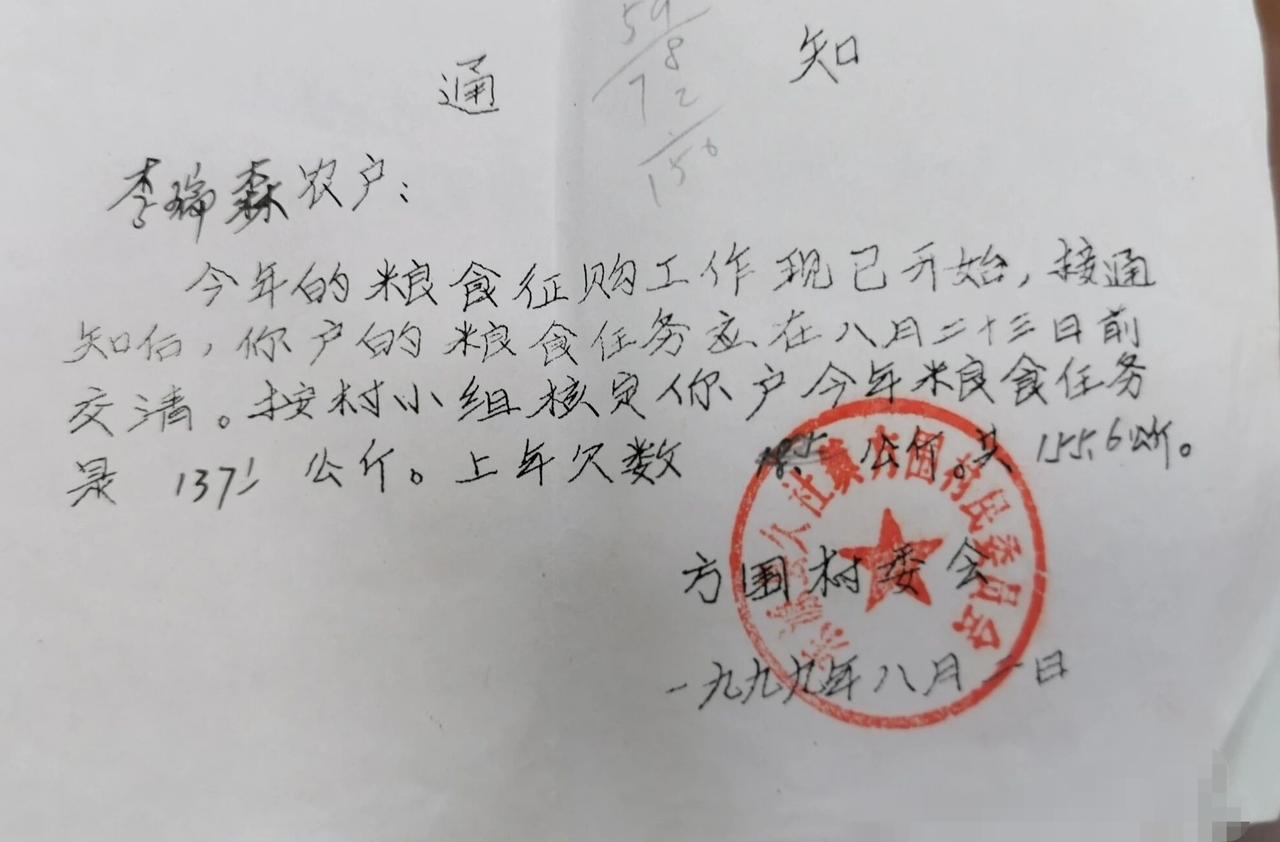 通 知
59
8
72
156
李瑞森农户:
今年的粮食征购工作现已开始,接通
知后,你户的粮食任务应在八月二十三日前
交清。按村小组核定你户今年粮食任务
是 137.1 公斤。上年欠数 18.5 公斤。共 155.6公斤。
久社镇方国村民委员会
方国村委会
一九九九年八月一日